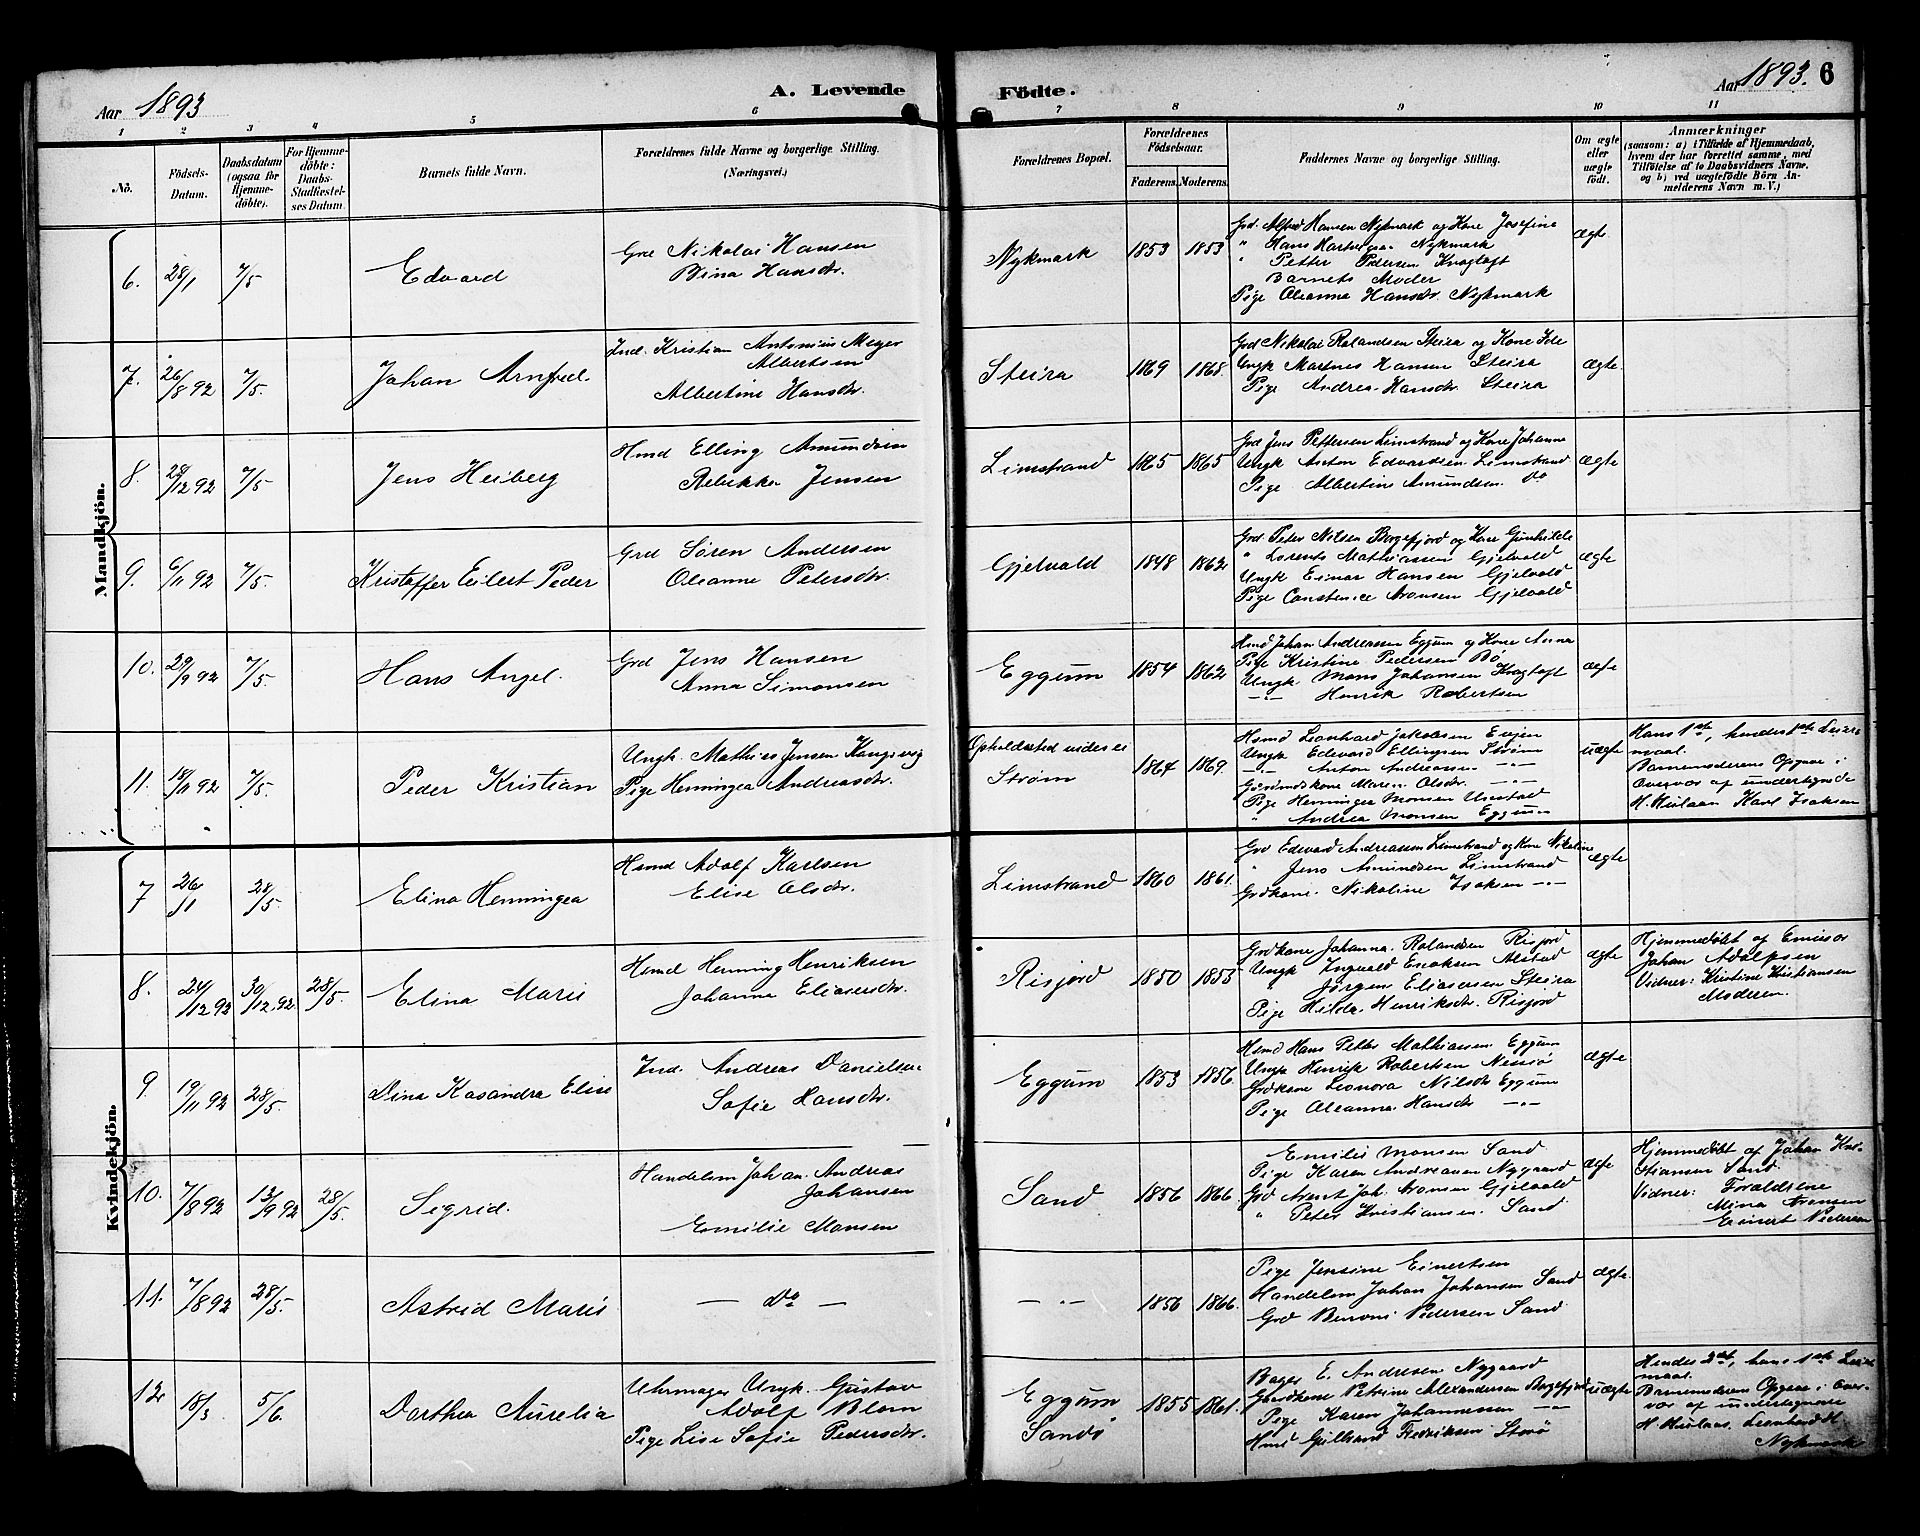 Aar 1893
A. Levende
Födte.
Aar 1893. 6
1 2 3 4 5 6 7 8 9 10 11
Nô.
Födsels-
Datum.
Daabsdatum
(ogsaa för
Hjemme-
döbte).
For Hjemme-
döbte:
Daabs-
Stadfæstel-
ses Datum.
Barnets fulde Navn.
Forældrenes fulde Navne og borgerlige Stilling.
(Næringsvei.)
Forældrenes Bopæl.
Forældrenes
Födselsaar.
Faderens. Moderens.
Faddernes Navne og borgerlige Stilling.
Om ægte
eller
uægte
födt.
Anmærkninger
(saasom: a) i Tilfælde af Hjemmedaab,
hvem der har forrettet samme, med
Tilföielse af to Daabsvidners Navne,
og b) ved uægtefödte Börn An-
melderens Navn m. V.)
Mandkjön.
6. 28/1 7/5 Edvard
Grd Nikolai Hansen
Bina Hansdr.
Nykmark 1853 1853
Grd. Alfred Hansen Nykmark og Kone Josefine
" Hans Hartvigsen Nykmark
" Petter Pedersen Knagtoft
Barnets Moder
Pige Oleanna Hansdr. Nykmark
ægte
7. 26/8 92 7/5. Johan Arnfred.
Ind. Kristian Antonius Meyer
Albertsen
Albertine Hansdr.
Steira 1869 1868.
Grd Nikolai Rolandsen Steira og Kone Ide
Ungk Martnes Hansen Steira
Pige Andrea Hansdr. Steira
ægte.
8. 28/12 92 7/5 Jens Heiberg
Hmd Elling Amundsen
Rebekka Jensen
Limstrand 1865 1865
Grd Jens Pettersen Limstrand og Kone Johanna
Ungk Anton Edvardsen Limstrand
Pige Albertine Amundsen do
ægte
9. 6/11 92 7/5. Kristoffer Eilert Peder
Grd Søren Andersen
Oleanna Petersdr.
Gjelvold 1848 1862
Grd Peter Nilsen Borgefjord og Kone Gunhilde
" Lorents Mathiassen Gjelvold
Ungk Einar Hansen Gjelvold
Pige Constence Aronsen Gjelvold
ægte
10. 29/9 92 7/5. Hans Angel.
Grd Jens Hansen
Anna Simonsen
Eggum 1854 1862
Hmd Johan Andreassen Eggum og Kone Anna
Pige Kristine Pedersen Bø
Ungk Mons Johansen Knagtoft
-"- Henrik Robertsen
ægte
11. 18/11 92 7/5. Peder Kristian
Ungk. Mathies Jensen Kangsvig
Pige Henningea Andreasdr.
Opholdssted vides ei
Strøm 1867 1869.
Hsmd Leonhard Jakobsen Evjen
Ungk Edvard Ellingsen Strøm
-"- Anton Andreassen -"-
Gaardmdskone Maren Olsdr. -"-
Pige Henningea Monsen Unstad
" Andrea Monsen Eggum
uægte
Hans 1ste, hendes 1ste Leier-
maal.
Barnemoderens Opgave i
Overvær af undertegnede
H. Hielaas Karl Isaksen
Kvindekjön.
7 26/11 28/5. Elina Henningea
Hsmd Adolf Karlsen
Elise Olsdr.
Limstrand 1860 1861.
Grd Edvard Andreassen Limstrand og Kone Nikoline
" Jens Amundsen Limstrand
Grdkone. Nikoline Isaksen -"-
ægte
8. 24/12 92 30/12.92 28/5. Elina Maris
Hsmd Henning Henriksen
Johanna Eliasersdr.
Risjord 1850 1853
Grdkone Johanna Rolandsen Risjord
Ungk Ingvald Eriksen Alstad
Jørgen Eliasersen Steira
Pige Hilda Henriksdr. Risjord
ægte
Hjemmedøbt af Emissør
Johan Adolfsen
Vidner: Kristine Kristiansen
Moderen.
9. 19/11 92 28/5. Dina Kasandra Elise
Ind. Andreas Danielsen
Sofie Hansdr.
Eggum 1853 1856.
Hsmd Hans Peter Mathiassen Eggum
Ungk Henrik Robertsen
Grdkone Leonora Nilsdr Eggum
Pige Oleanna Hansdr -"-
ægte
10. 7/8 92 12/9 92 28/5. Sigrid.
Handelsm Johan Andreas
Johansen
Emilie Monsen
Sand 1856 1866.
Emilie Monsen Sand
Pige Karen Andreasen Nygaard
Grd Arent Joh. Aronsen Gjelvold
" Peter Kristiansen Sand
ægte
Hjemmedøbt af Johan Kri-
stiansen Sand
Vidner: Foraldrene
Mina Aronsen
Einert Pedersen
11. 7/8 92 28/5. Astrid Maris
— do —
— " — 1856 1866.
Pige Jensine Einertsen
Handelsm Johan Johansen Sand
Grd Benoni Pedersen Sand
ægte.
12 18/3 5/6. Dorthea Aurelia
Uhrmager Ungk. Gustav
Adolf Blom
Pige Lise Sofie Pedersdr.
Eggum
Sandø 1855 1861.
Bager E. Andresen Nygaard
Gaardkone Petrine Alexandersen Borgefjord
Pige Karen Johannessen -"-
Hmd Gulbrand Fredriksen Storø
uægte
Hendes 2det, hans 1ste Leier
maal.
Barnemoderens Opgave i Over-
vær af undertegnede
H. Hielaas. Leonhard H
Nykmark